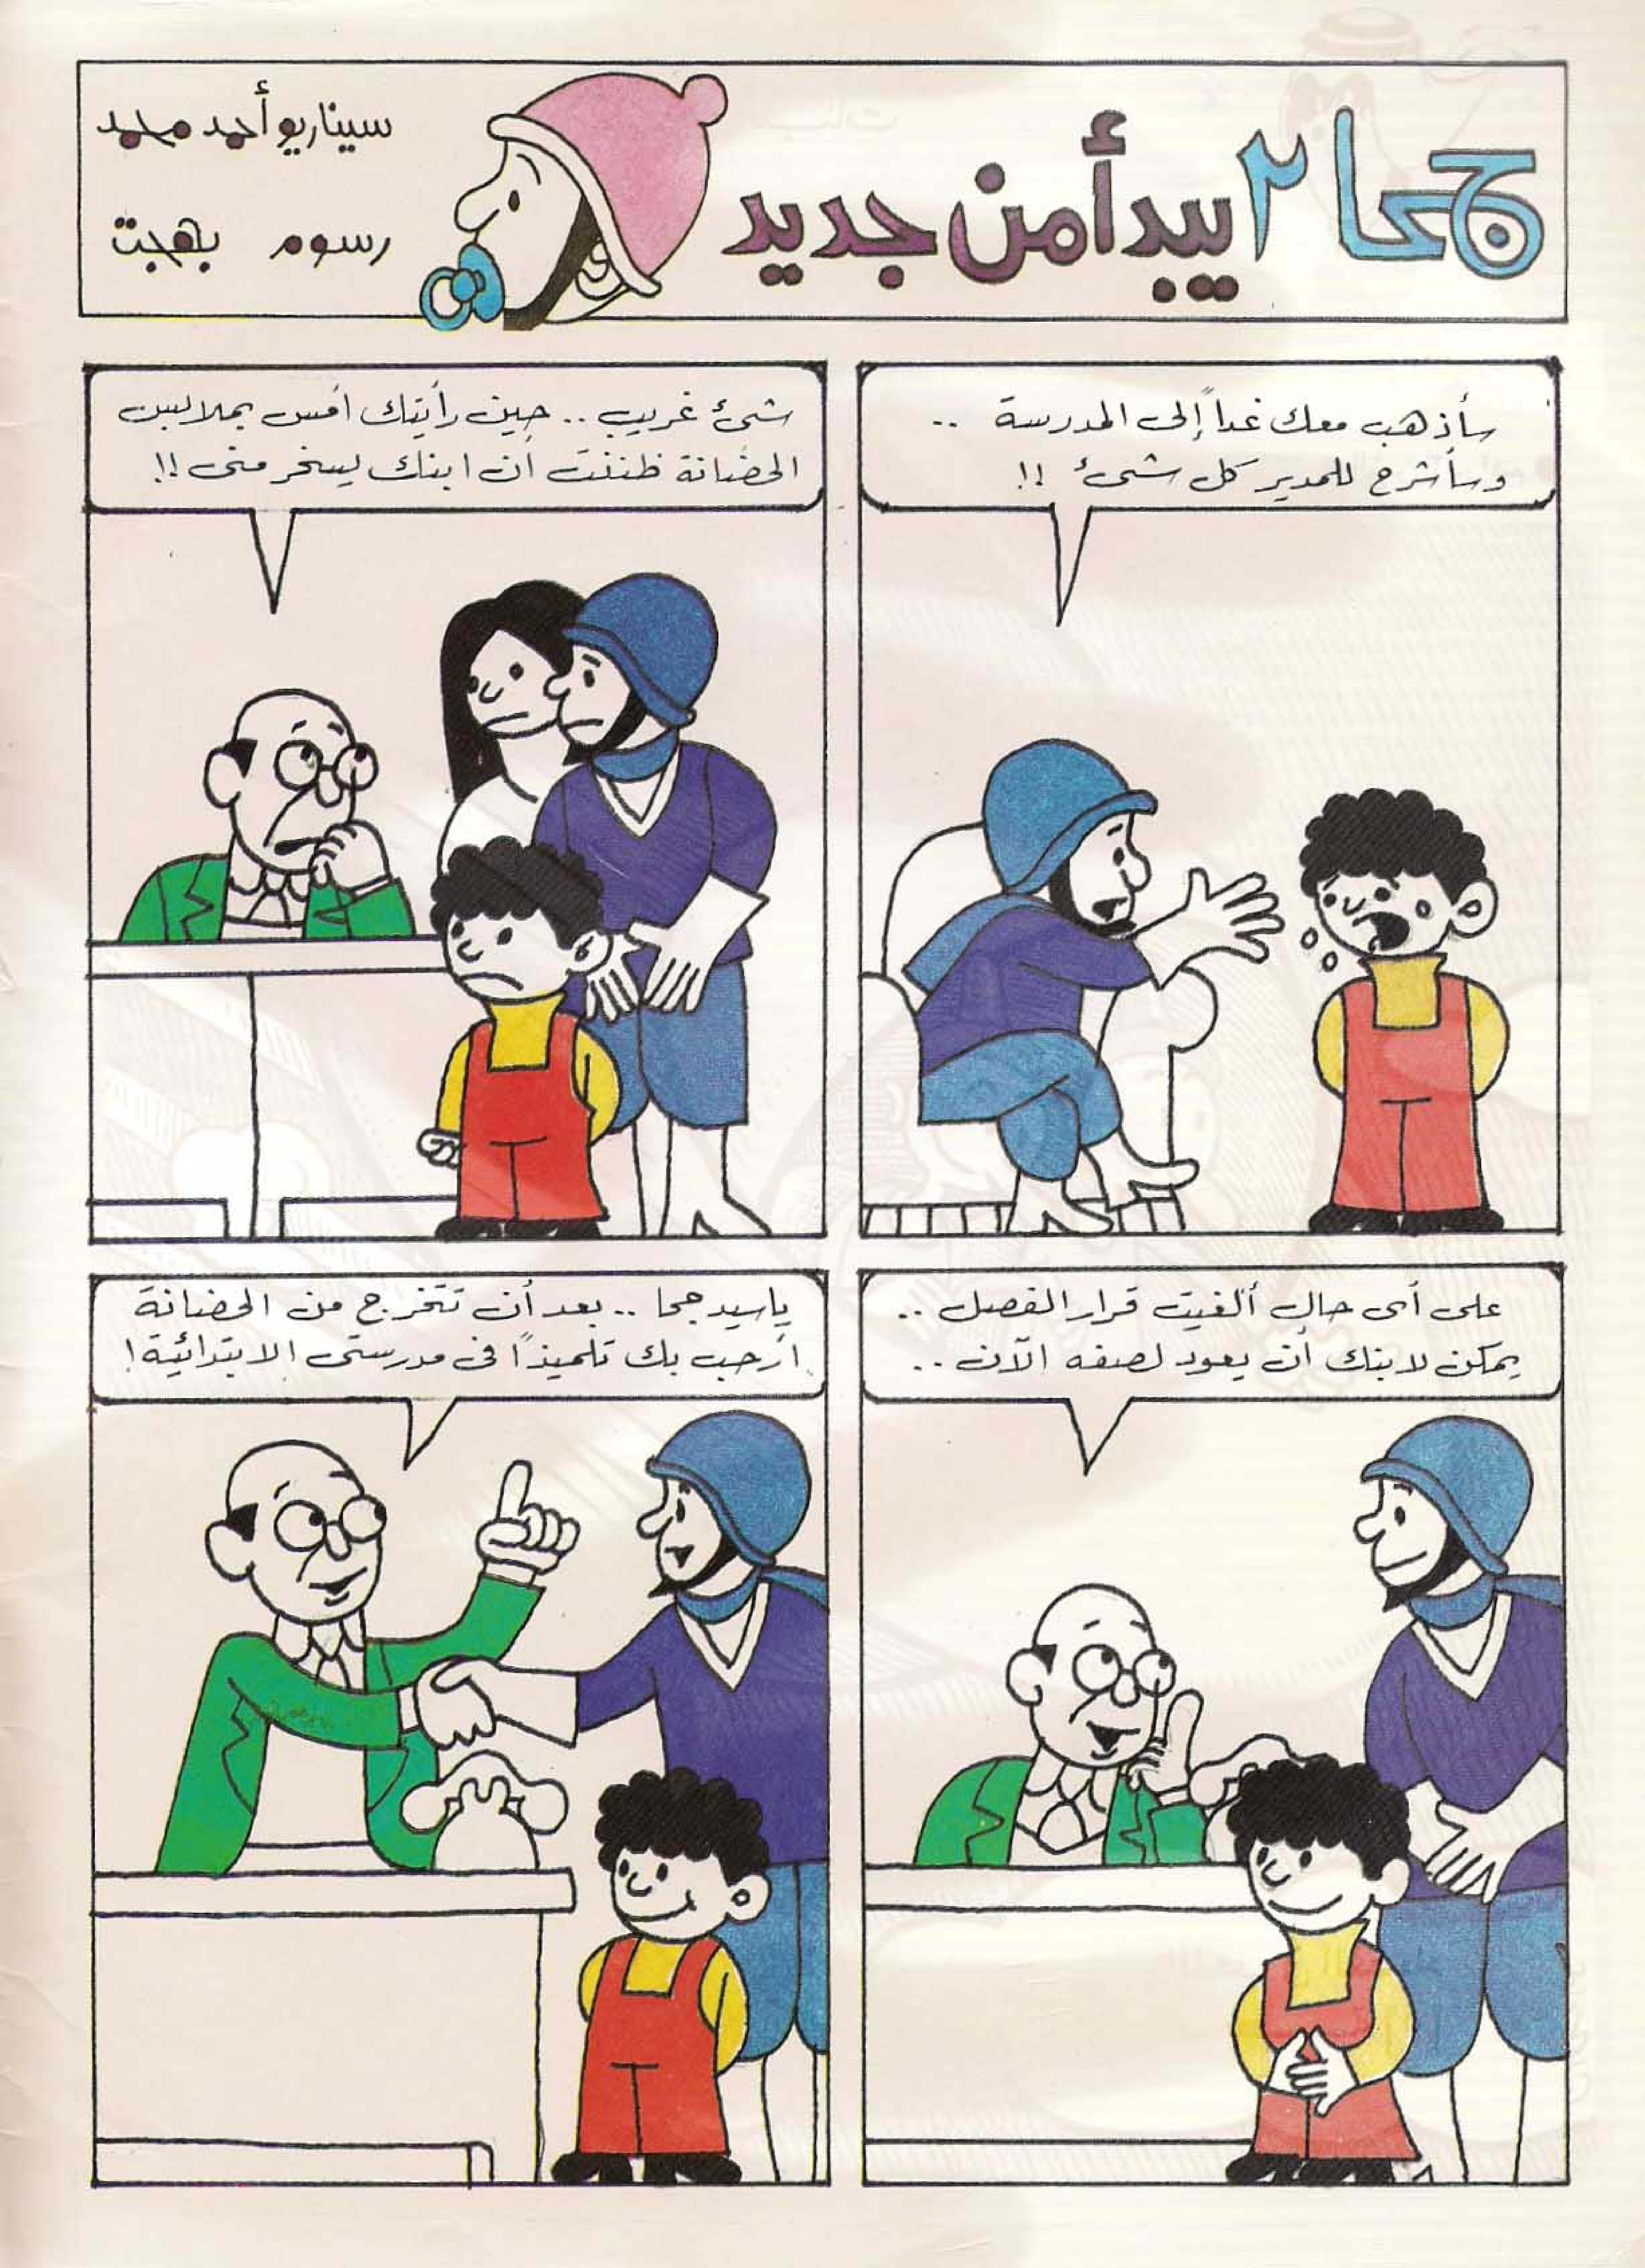 جحا ٢ يبدأ من جديد
سيناريو أحمد محمد
رسوم بهجت
سأذهب معك غداً إلى المدرسة ..
وسأشرح للمدير كل شىء !!
شىء غريب .. حين رأيتك أمس بملابس
الحضانة ظننت أن ابنك يسخر منى !!
على أى حال ألغيت قرار الفصل ..
يمكن لابنك أن يعود لصفه الآن ..
ياسيد جحا .. بعد أن تتخرج من الحضانة
أرحب بك تلميذاً فى مدرستى الابتدائية !